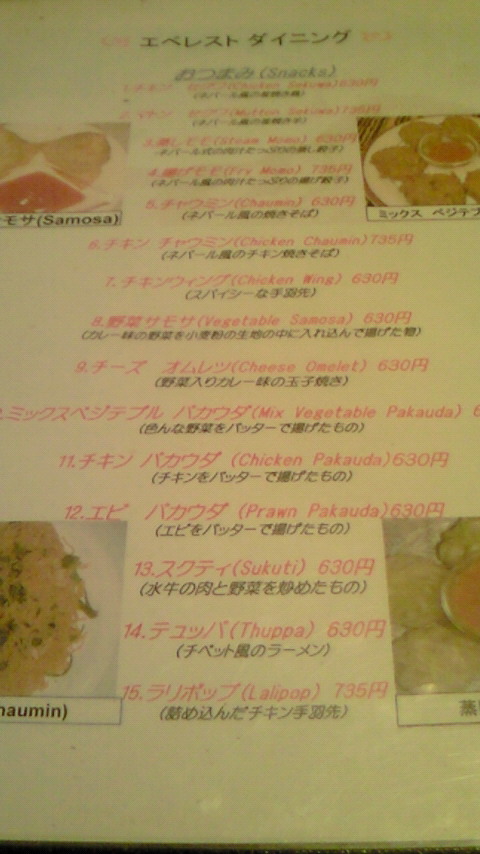 エベレスト ダイニング
おつまみ(Snacks)
1.チキン セクワ(Chicken Sekuwa)630円
(ネパール風の釜焼き鳥)
2.マトン セクワ(Mutton Sekuwa)735円
(ネパール風の釜焼き羊)
3.蒸しモモ(Steam Momo) 630円
(ネパール式の肉汁たっぷりの蒸し餃子)
4.揚げモモ(Fry Momo) 735円
(ネパール風の肉汁たっぷりの揚げ餃子)
5.チャウミン(Chaumin) 630円
(ネパール風の焼きそば)
モサ(Samosa)
ミックス ベジテブ
6.チキン チャウミン(Chicken Chaumin)735円
(ネパール風のチキン焼きそば)
7.チキンウィング(Chicken Wing) 630円
(スパイシーな手羽先)
8.野菜サモサ(Vegetable Samosa) 630円
(カレー味の野菜を小麦粉の生地の中に入れ込んで揚げた物)
9.チーズ オムレツ(Cheese Omelet) 630円
(野菜入りカレー味の玉子焼き)
.ミックスベジテブル パカウダ(Mix Vegetable Pakauda) 6
(色んな野菜をバッターで揚げたもの)
11.チキン パカウダ (Chicken Pakauda)630円
(チキンをバッターで揚げたもの)
12.エビ パカウダ (Prawn Pakauda)630円
(エビをバッターで揚げたもの)
13.スクティ(Sukuti) 630円
(水牛の肉と野菜を炒めたもの)
14.テュッパ(Thuppa) 630円
(チベット風のラーメン)
15.ラリポップ(Lalipop) 735円
(詰め込んだチキン手羽先)
haumin)
蒸